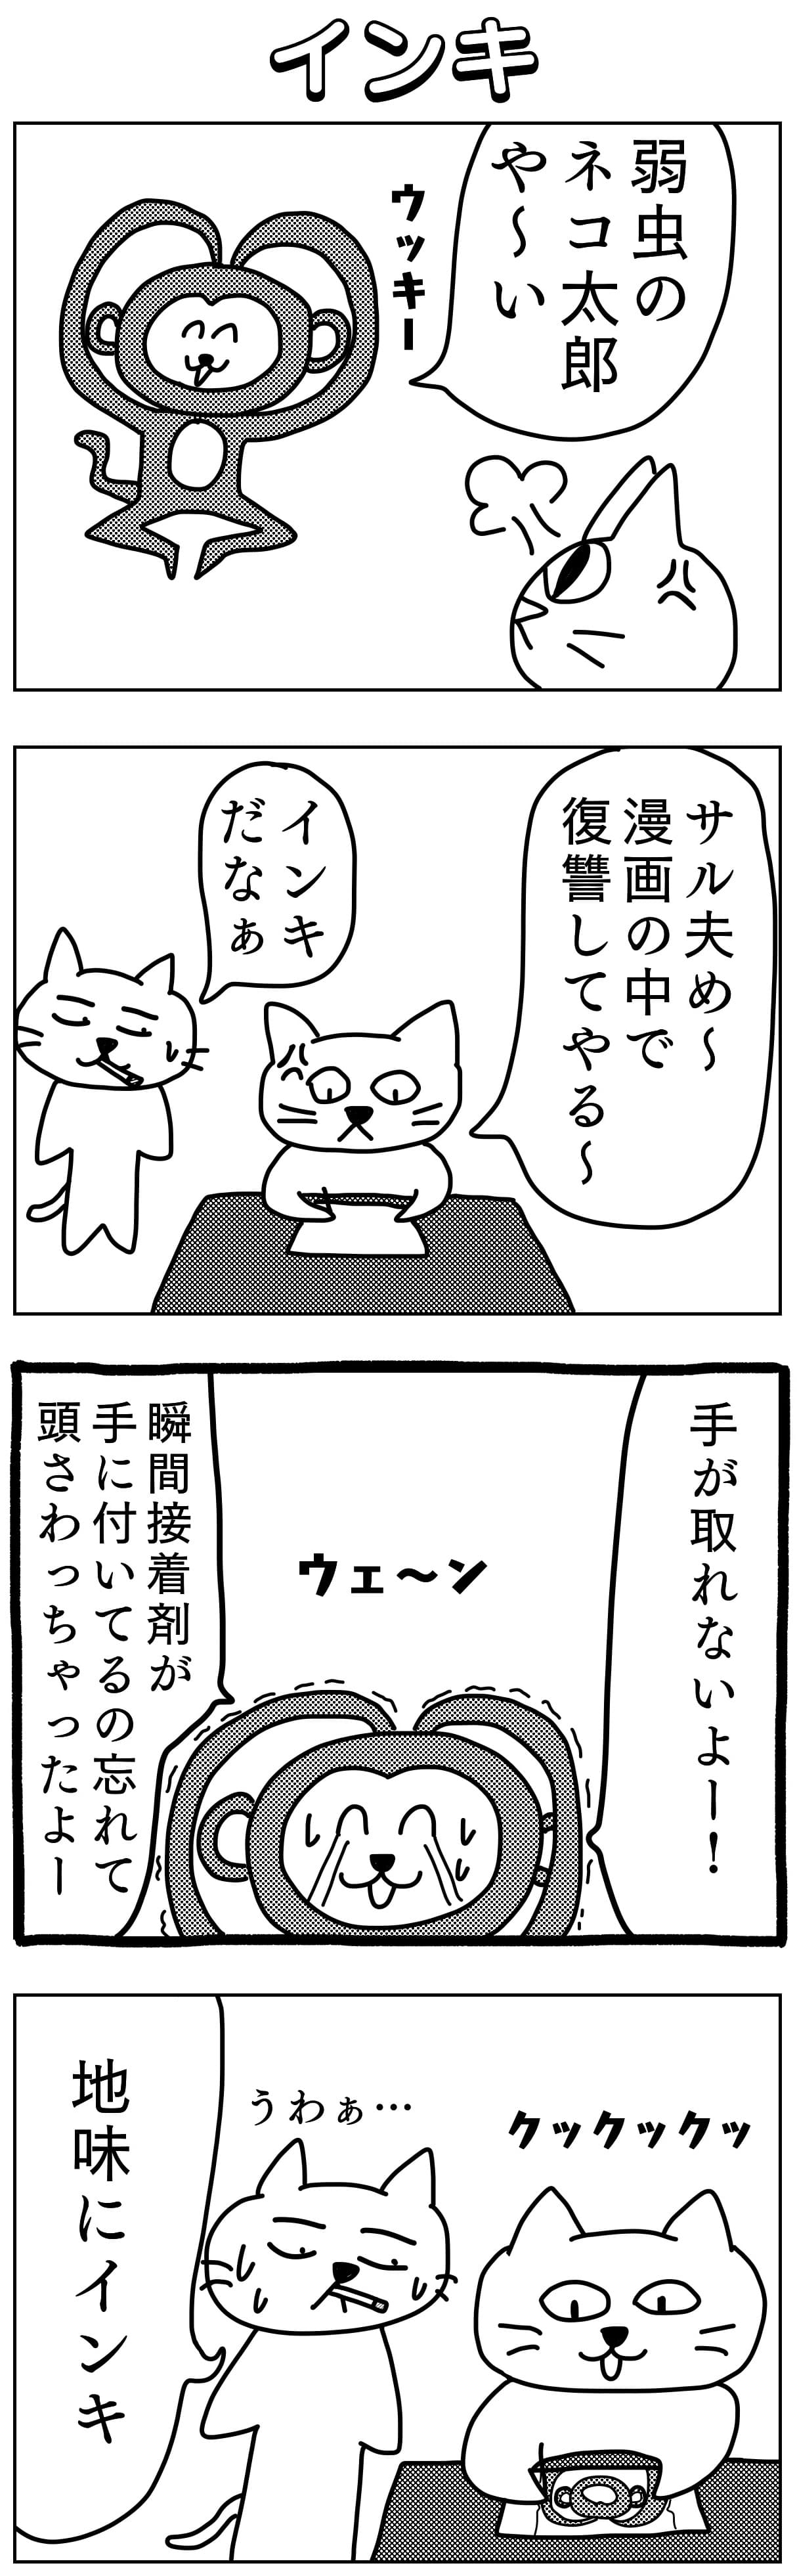 インキ
弱虫の
ネコ太郎
や〜い
ウッキー
サル夫め〜
漫画の中で
復讐してやる〜
インキ
だなぁ
手が取れないよー！
ウェ〜ン
瞬間接着剤が
手に付いてるの忘れて
頭さわっちゃったよー
クックックッ
うわぁ…
地味にインキ